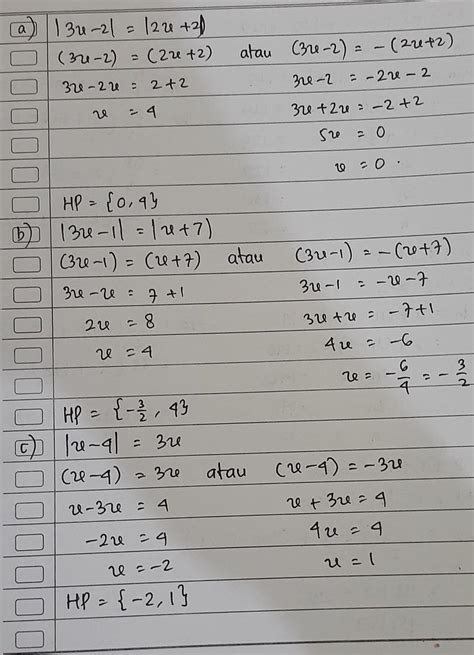 a) |3x-2| = |2x+2|
(3x-2) = (2x+2) atau (3x-2) = -(2x+2)
3x-2x = 2+2 3x-2 = -2x-2
x = 4 3x+2x = -2+2
5x = 0
x = 0.
HP = {0, 4}
b) |3x-1| = |x+7)
(3x-1) = (x+7) atau (3x-1) = -(x+7)
3x-x = 7+1 3x-1 = -x-7
2x = 8 3x+x = -7+1
x = 4 4x = -6
x = -6/4 = -3/2
HP = {-3/2, 4}
c) |x-4| = 3x
(x-4) = 3x atau (x-4) = -3x
x-3x = 4 x+3x = 4
-2x = 4 4x = 4
x = -2 x = 1
HP = {-2, 1}